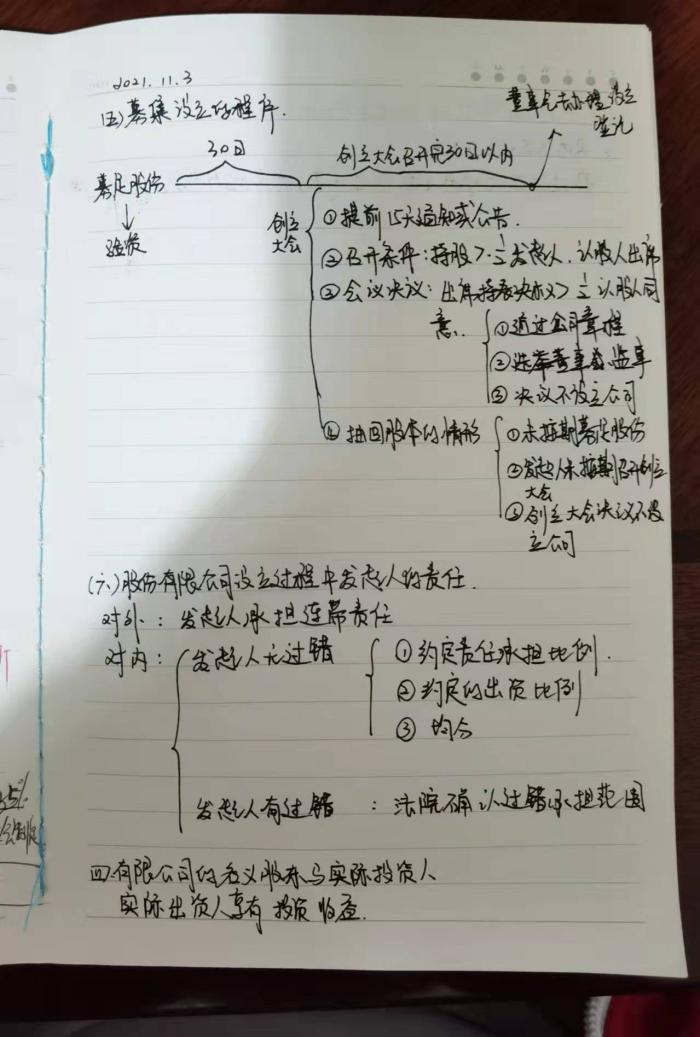 2021.11.3
董事会去办理设立
登记
(五)募集设立的程序.
30日
创立大会召开完30日以内
募足股份
↓
验资
创立
大会
①提前15天通知或公告.
②召开条件:持股>1/2发起人、认股人出席
③会议决议:出席持表决权>1/2认股人同
意.
①通过公司章程
②选举董事会、监事
③决议不设立公司
④抽回股本的情形
①未按期募足股份
②发起人未按期召开创立
大会
③创立大会决议不设
立公司
(六)股份有限公司设立过程中发起人的责任.
对外:发起人承担连带责任
对内:
发起人无过错
①约定责任承担比例.
②约定的出资比例
③均分
发起人有过错:法院确认过错承担范围
四.有限公司的名义股东与实际投资人
实际出资人享有投资收益.
5%